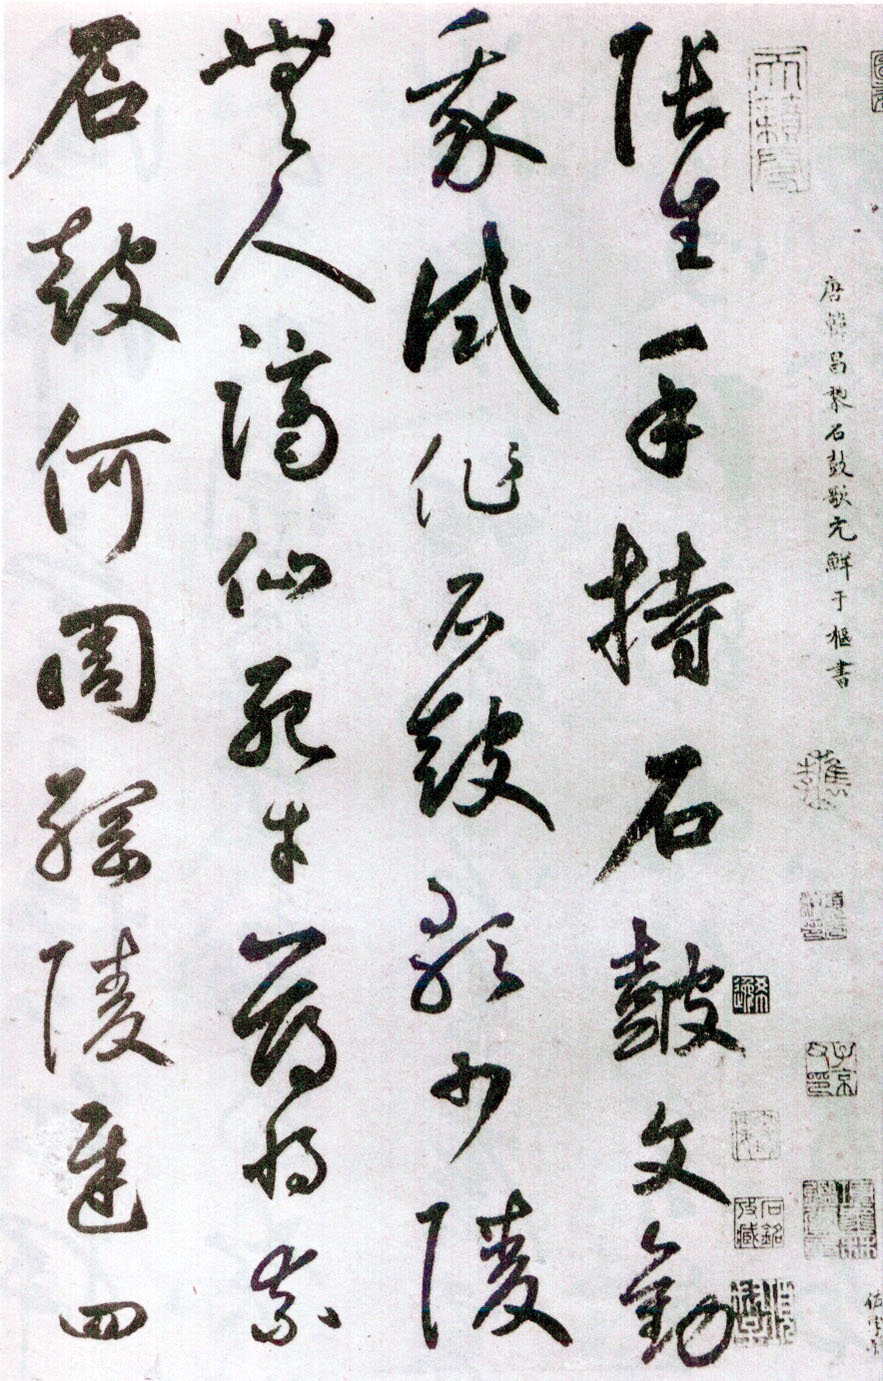 唐韓昌黎石鼓歌元鮮于樞書
張生手持石鼓文勸
我試作石鼓歌少陵
無人謫仙死才薄將奈
石鼓何周綱陵遲四